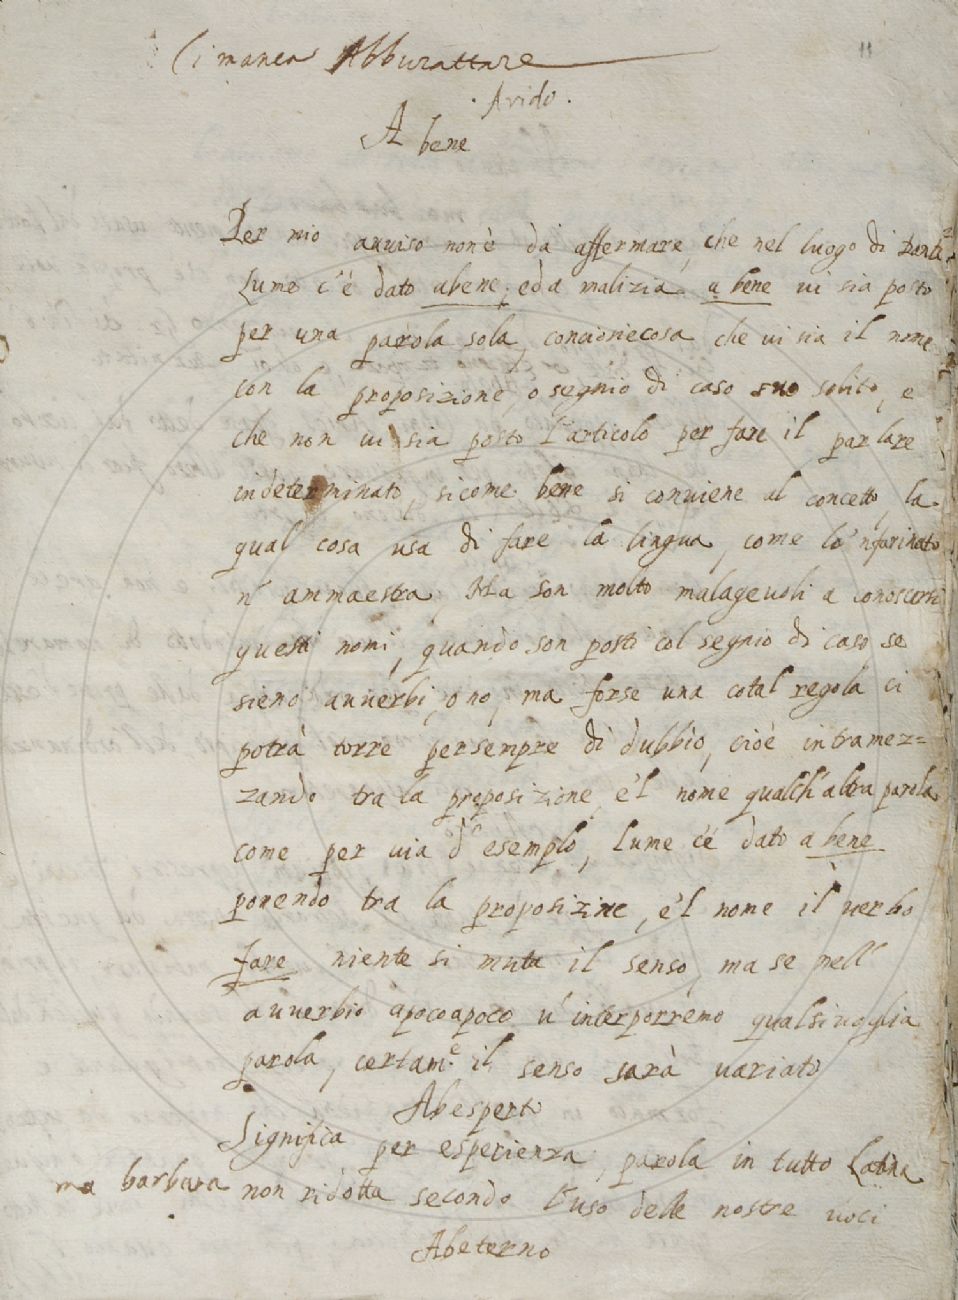 11
Ci manca Abburattare
Arido.
A bene
Per mio auuiso non è da affermare, che nel luogo di Dante
Lume c'è dato abene, ed a malizia a bene ui sia posto
per una parola sola, conciosiecosa che ui sia il nome
con la proposizione, o segnio di caso suo solito, e
che non ui sia posto l'articolo per fare il parlare
indeterminato, sicome bene si conuiene al concetto, la
qual cosa usa di fare la lingua, come lo 'nfarinato
n' ammaestra. Ma son molto malageuoli a conoscersi
questi nomi, quando son posti col segnio di caso se
sieno auuerbi, o no, ma forse una cotal regola ci
potrà torre persempre di dubbio, cioè intramez=
zando tra la preposizione, e'l nome qualch'altra parola
come per uia d'esemplo, Lume c'è dato a bene
ponendo tra la proposizine, e'l nome il uerbo
fare niente si muta il senso, ma se nell'
auuerbio apocoapoco u' interporremo qualsiuoglia
parola, certam.e il senso sarà uariato
Abesperto
Significa per esperienza, parola in tutto Latina
ma barbara non ridotta secondo l'uso delle nostre uoci
Abeterno